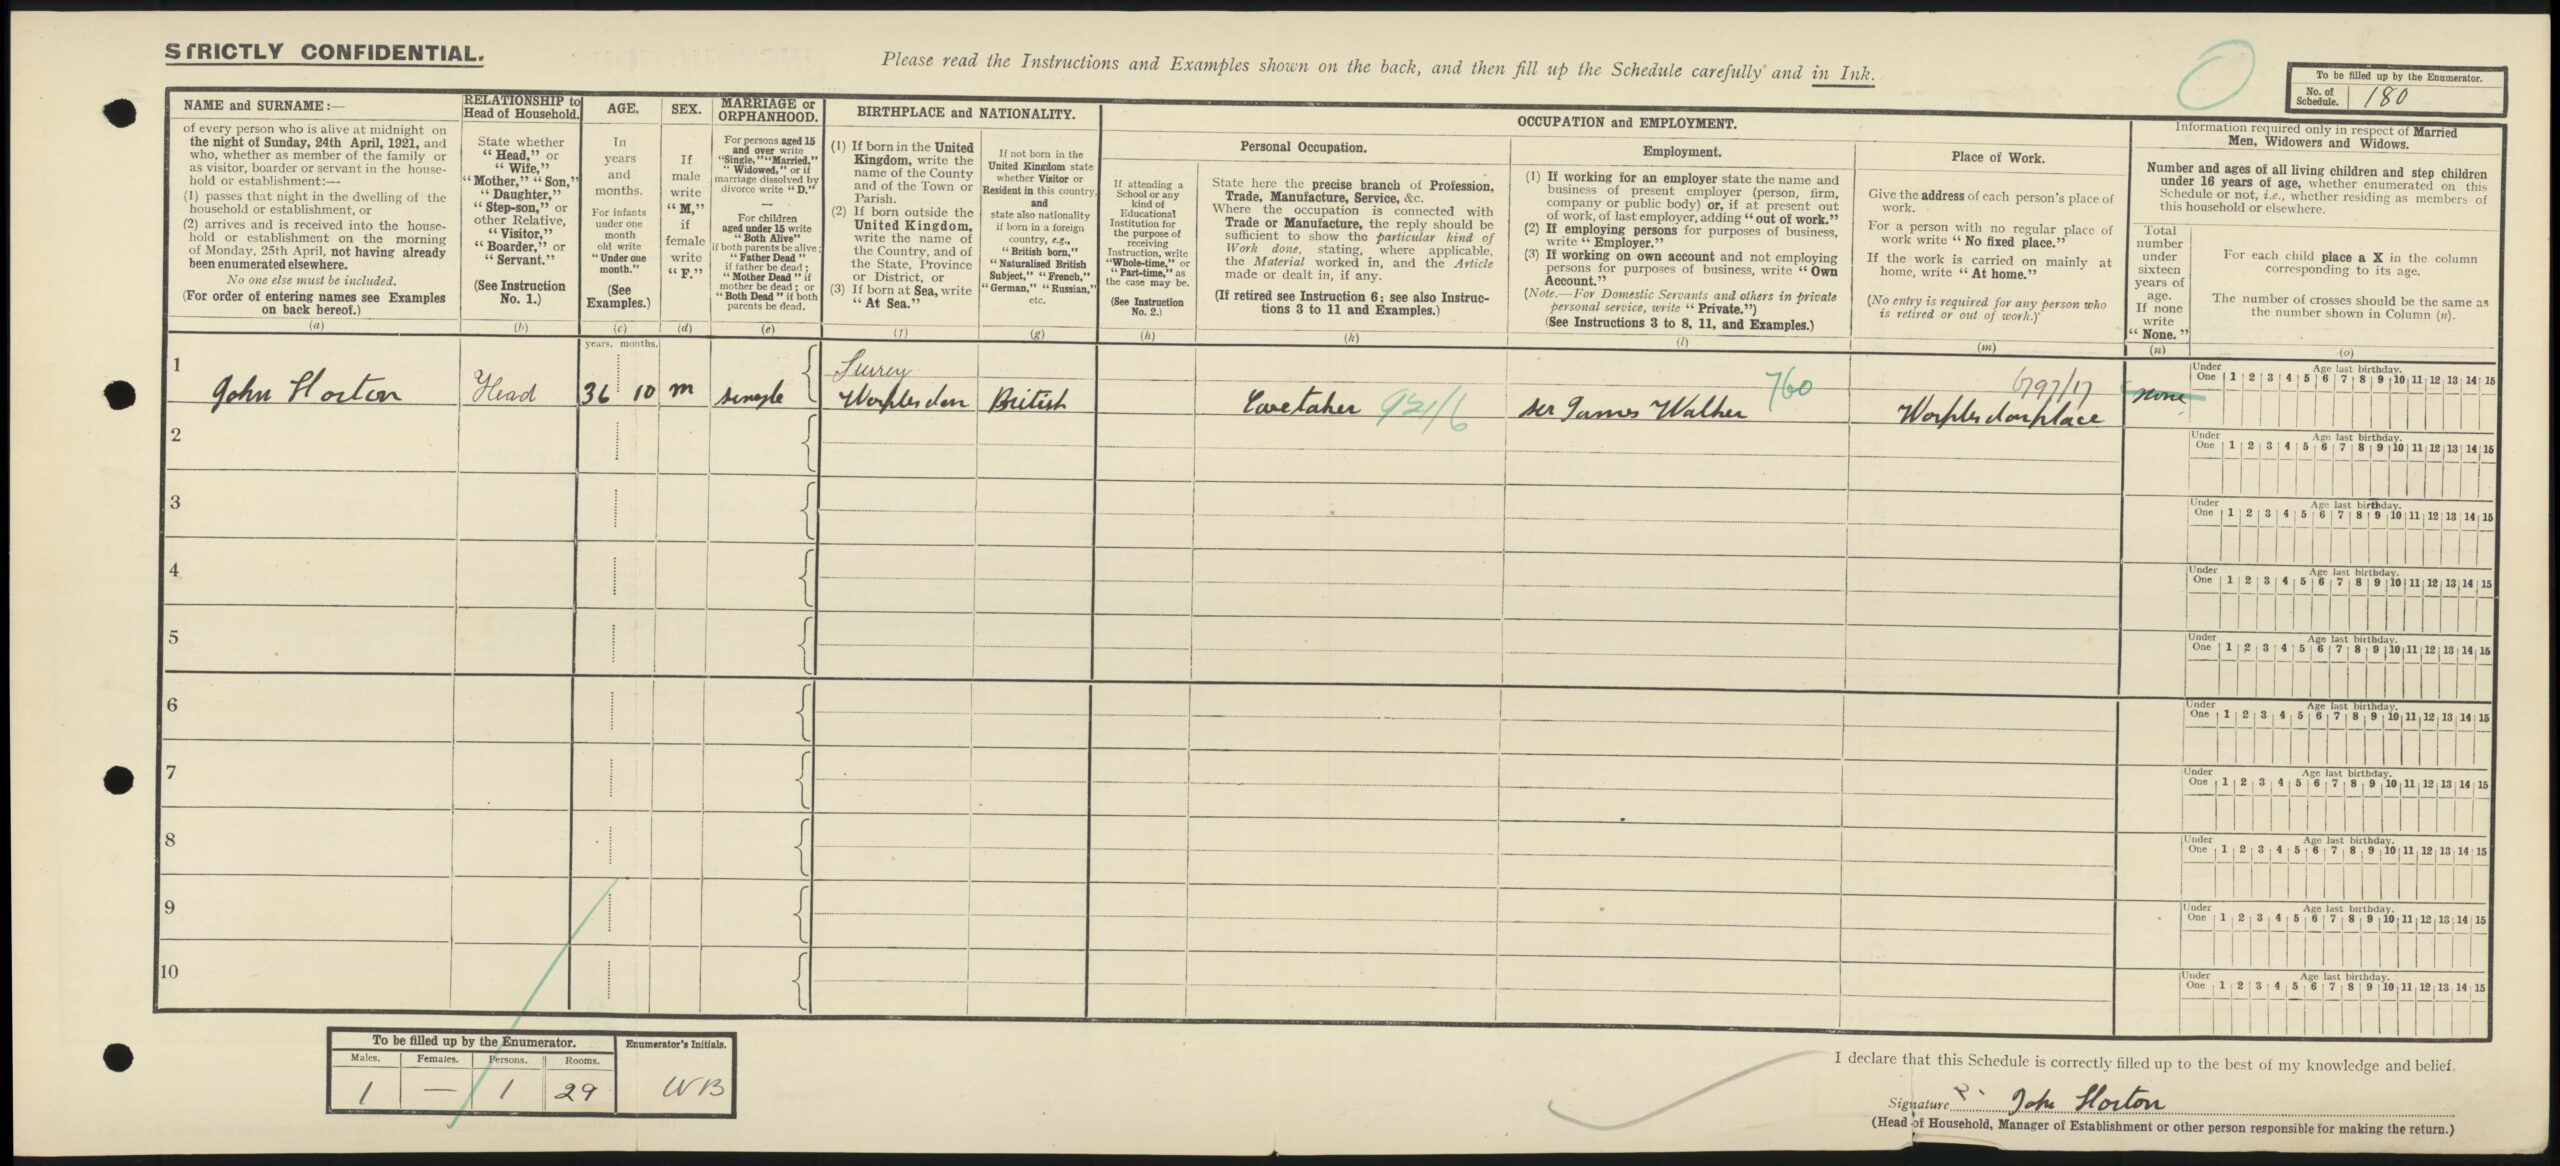 STRICTLY CONFIDENTIAL.
Please read the Instructions and Examples shown on the back, and then fill up the Schedule carefully and in Ink.
To be filled up by the Enumerator.
No. of Schedule. 180
NAME and SURNAME:—
of every person who is alive at midnight on
the night of Sunday, 24th April, 1921, and
who, whether as member of the family or
as visitor, boarder or servant in the house-
hold or establishment:—
(1) passes that night in the dwelling of the
household or establishment, or
(2) arrives and is received into the house-
hold or establishment on the morning
of Monday, 25th April, not having already
been enumerated elsewhere.
No one else must be included.
(For order of entering names see Examples
on back hereof.)
(a)
RELATIONSHIP to
Head of Household.
State whether
"Head," or
"Wife,"
"Mother," "Son,"
"Daughter,"
"Step-son," or
other Relative,
"Visitor,"
"Boarder," or
"Servant."
(See Instruction
No. 1.)
(b)
AGE.
In
years
and
months.
For infants
under one
month
old write
"Under one
month."
(See
Examples.)
(c)
SEX.
If
male
write
"M,"
if
female
write
"F."
(d)
MARRIAGE or
ORPHANHOOD.
For persons aged 15
and over write
"Single," "Married,"
"Widowed," or if
marriage dissolved by
divorce write "D."
—
For children
aged under 15 write
"Both Alive"
if both parents be alive;
"Father Dead"
if father be dead;
"Mother Dead" if
mother be dead; or
"Both Dead" if both
parents be dead.
(e)
BIRTHPLACE and NATIONALITY.
(1) If born in the United
Kingdom, write the
name of the County
and of the Town or
Parish.
(2) If born outside the
United Kingdom,
write the name of
the Country, and of
the State, Province
or District, or
(3) If born at Sea, write
"At Sea."
(f)
If not born in the
United Kingdom state
whether Visitor or
Resident in this country,
and
state also nationality
if born in a foreign
country, e.g.,
"British born,"
"Naturalised British
Subject," "French,"
"German," "Russian,"
etc.
(g)
OCCUPATION and EMPLOYMENT.
If attending a
School or any
kind of
Educational
Institution for
the purpose of
receiving
Instruction, write
"Whole-time," or
"Part-time," as
the case may be.
(See Instruction
No. 2.)
(h)
Personal Occupation.
State here the precise branch of Profession,
Trade, Manufacture, Service, &c.
Where the occupation is connected with
Trade or Manufacture, the reply should be
sufficient to show the particular kind of
Work done, stating, where applicable,
the Material worked in, and the Article
made or dealt in, if any.
(If retired see Instruction 6; see also Instruc-
tions 3 to 11 and Examples.)
(k)
Employment.
(1) If working for an employer state the name and
business of present employer (person, firm,
company or public body) or, if at present out
of work, of last employer, adding "out of work."
(2) If employing persons for purposes of business,
write "Employer."
(3) If working on own account and not employing
persons for purposes of business, write "Own
Account."
(Note.—For Domestic Servants and others in private
personal service, write "Private.")
(See Instructions 3 to 8, 11, and Examples.)
(l)
Place of Work.
Give the address of each person's place of
work.
For a person with no regular place of
work write "No fixed place."
If the work is carried on mainly at
home, write "At home."
(No entry is required for any person who
is retired or out of work.)
(m)
Information required only in respect of Married
Men, Widowers and Widows.
Number and ages of all living children and step children
under 16 years of age, whether enumerated on this
Schedule or not, i.e., whether residing as members of
this household or elsewhere.
Total
number
under
sixteen
years of
age.
If none
write
"None."
(n)
For each child place a X in the column
corresponding to its age.
The number of crosses should be the same as
the number shown in Column (n).
(o)
years. months.
1 John Horton Head 36 10 m single Surrey Worplesdon British Caretaker 921/6 ser James Walker 760 Worplesdon place 6797/17 none
Under One Age last birthday. 1 2 3 4 5 6 7 8 9 10 11 12 13 14 15
2
Under One Age last birthday. 1 2 3 4 5 6 7 8 9 10 11 12 13 14 15
3
Under One Age last birthday. 1 2 3 4 5 6 7 8 9 10 11 12 13 14 15
4
Under One Age last birthday. 1 2 3 4 5 6 7 8 9 10 11 12 13 14 15
5
Under One Age last birthday. 1 2 3 4 5 6 7 8 9 10 11 12 13 14 15
6
Under One Age last birthday. 1 2 3 4 5 6 7 8 9 10 11 12 13 14 15
7
Under One Age last birthday. 1 2 3 4 5 6 7 8 9 10 11 12 13 14 15
8
Under One Age last birthday. 1 2 3 4 5 6 7 8 9 10 11 12 13 14 15
9
Under One Age last birthday. 1 2 3 4 5 6 7 8 9 10 11 12 13 14 15
10
Under One Age last birthday. 1 2 3 4 5 6 7 8 9 10 11 12 13 14 15
To be filled up by the Enumerator.
Males. Females. Persons. Rooms.
1 — 1 29
Enumerator's Initials.
WB
I declare that this Schedule is correctly filled up to the best of my knowledge and belief.
Signature John Horton
(Head of Household, Manager of Establishment or other person responsible for making the return.)